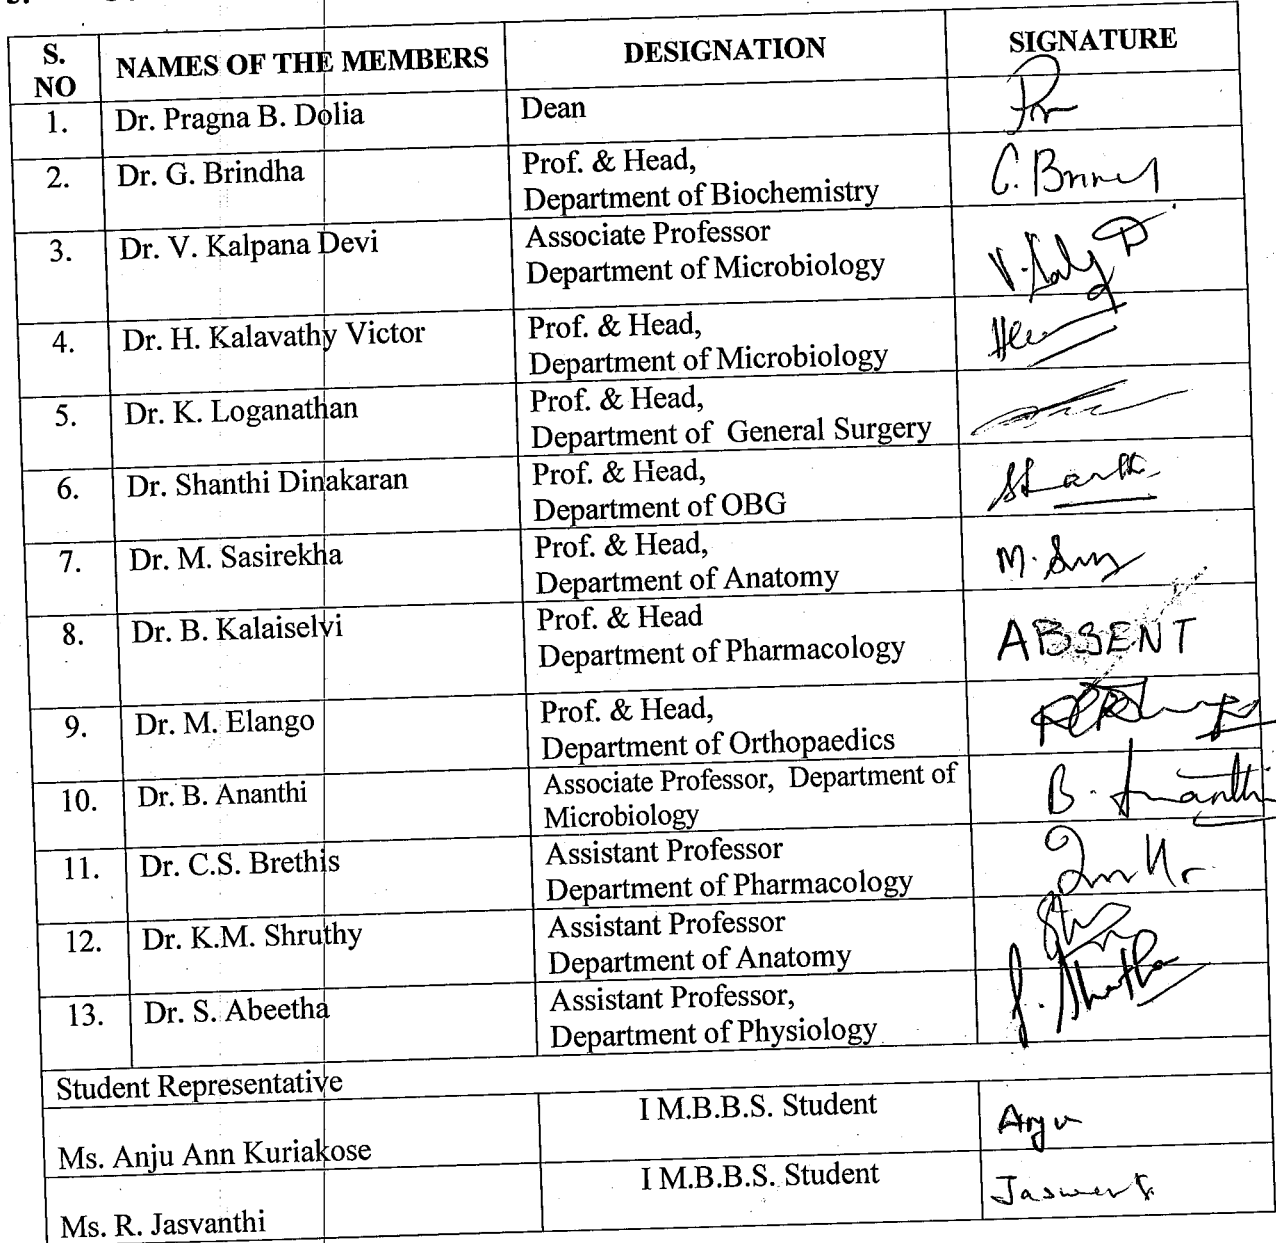 S. NO NAMES OF THE MEMBERS DESIGNATION SIGNATURE
1. Dr. Pragna B. Dolia Dean
2. Dr. G. Brindha Prof. & Head,
Department of Biochemistry
3. Dr. V. Kalpana Devi Associate Professor
Department of Microbiology
4. Dr. H. Kalavathy Victor Prof. & Head,
Department of Microbiology
5. Dr. K. Loganathan Prof. & Head,
Department of General Surgery
6. Dr. Shanthi Dinakaran Prof. & Head,
Department of OBG
7. Dr. M. Sasirekha Prof. & Head,
Department of Anatomy
8. Dr. B. Kalaiselvi Prof. & Head
Department of Pharmacology ABSENT
9. Dr. M. Elango Prof. & Head,
Department of Orthopaedics
10. Dr. B. Ananthi Associate Professor, Department of
Microbiology B. Ananthi
11. Dr. C.S. Brethis Assistant Professor
Department of Pharmacology
12. Dr. K.M. Shruthy Assistant Professor
Department of Anatomy
13. Dr. S. Abeetha Assistant Professor,
Department of Physiology
Student Representative
I M.B.B.S. Student
Ms. Anju Ann Kuriakose Anju
I M.B.B.S. Student
Ms. R. Jasvanthi